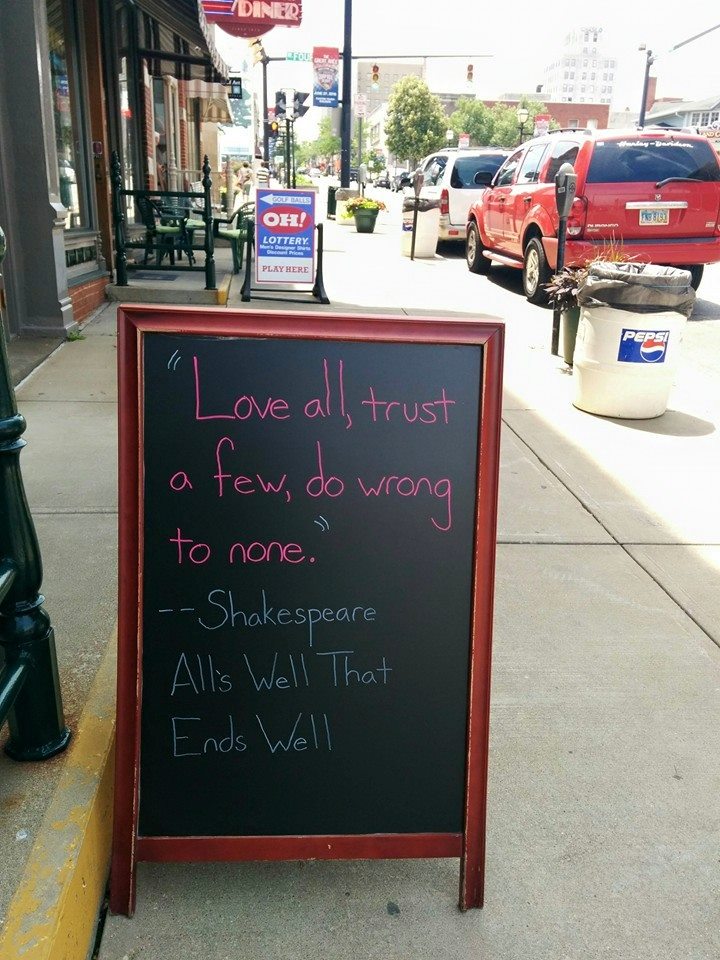 DINER
GOLF BALLS
OH!
LOTTERY
Men's Designer Shirts
Discount Prices
PLAY HERE
Harley-Davidson
DURANGO
PEPSI
" Love all, trust
a few, do wrong
to none."
--Shakespeare
All's Well That
Ends Well